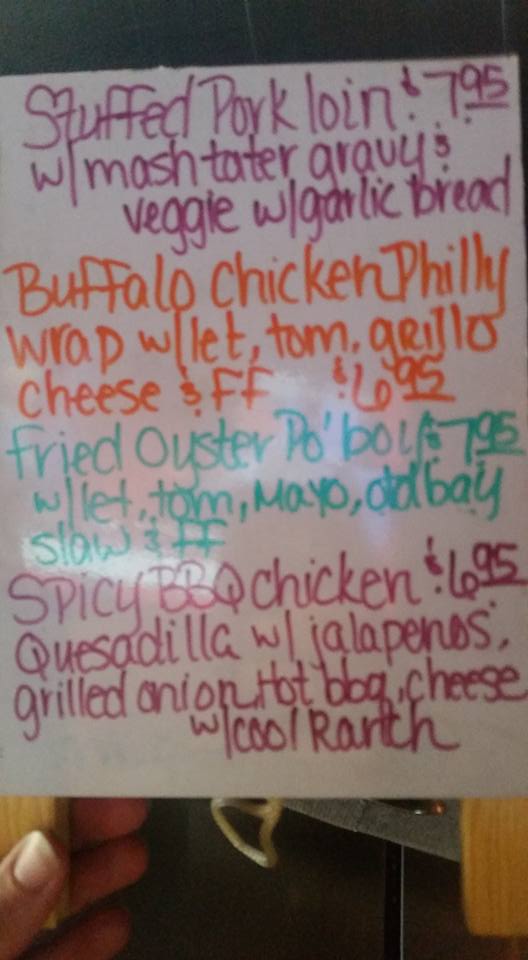 Stuffed Pork loin $7.95
w/mash tater gravy &
veggie w/garlic bread
Buffalo Chicken Philly
wrap w/let, tom, grill o
cheese & FF $6.95
Fried Oyster Po'boy $7.95
w/let, tom, Mayo, old bay
slaw & FF
Spicy BBQ chicken $6.95
Quesadilla w/ jalapenos,
grilled onion, Hot bbq, cheese
w/cool Ranch